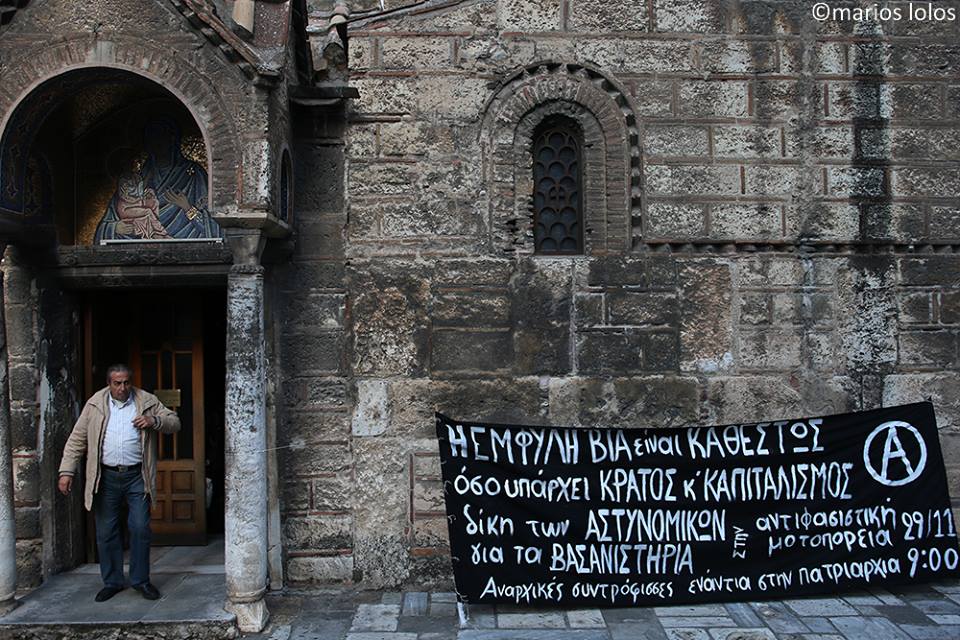 ©marios lolos
Η ΕΜΦΥΛΗ ΒΙΑ είναι ΚΑΘΕΣΤΩΣ
όσο υπάρχει ΚΡΑΤΟΣ κ' ΚΑΠΙΤΑΛΙΣΜΟΣ
δίκη των ΑΣΤΥΝΟΜΙΚΩΝ
για τα ΒΑΣΑΝΙΣΤΗΡΙΑ
ΣΤΗΝ
αντιφασιστική
μοτοπορεία
29/11
9:00
Αναρχικές συντρόφισσες ενάντια στην πατριαρχία